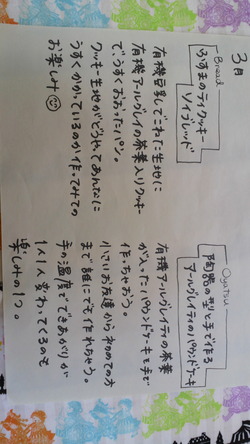 3月
Bread
ふすまのティクッキー
ソイブレッド
有機豆乳でこねた生地に
有機アールグレイの茶葉入りクッキー
で、うすくおおったパン。
クッキー生地がどうやってあんなに
うすくかかっているのか作ってみての
お楽しみ☺
Ogatsu
陶器の型と手で作る
アールグレイティのパウンドケーキ
有機アールグレイティの茶葉
が入ったパウンドケーキを手で
作っちゃおう。
小さいお友達から初めての方
まで誰にでも作れちゃう。
手の温度でできあがりが
1人1人変わってくるのも
楽しみの1つ。